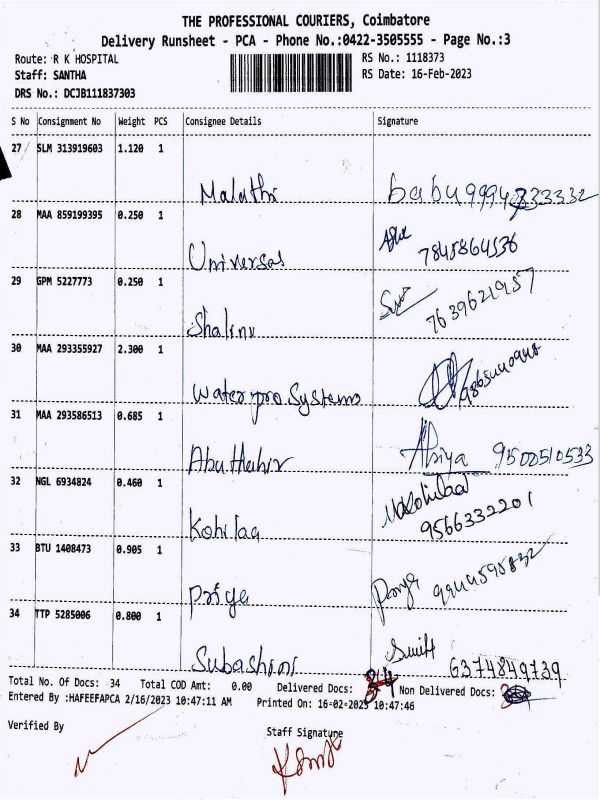 THE PROFESSIONAL COURIERS, Coimbatore
Delivery Runsheet - PCA - Phone No.:0422-3505555 - Page No.:3
Route: R K HOSPITAL RS No.: 1118373
Staff: SANTHA RS Date: 16-Feb-2023
DRS No.: DCJB111837303
S No Consignment No Weight PCS Consignee Details Signature
27 SLM 313919603 1.120 1
Malathi babu 9994333332
28 MAA 859199395 0.250 1
Universal 7845864536
29 GPM 5227773 0.250 1
Shalini 7639621957
30 MAA 293355927 2.300 1
Water pro Systems
31 MAA 293586513 0.685 1
Abuthahir Priya 9500510533
32 NGL 6934824 0.460 1
Kohilaa 9566332201
33 BTU 1408473 0.905 1
Priya Priya 9944595832
34 TTP 5285006 0.800 1
Subashini 6374849739
Total No. Of Docs: 34 Total COD Amt: 0.00 Delivered Docs: Non Delivered Docs:
Entered By :HAFEEFAPCA 2/16/2023 10:47:11 AM Printed On: 16-02-2023 10:47:46
Verified By Staff Signature